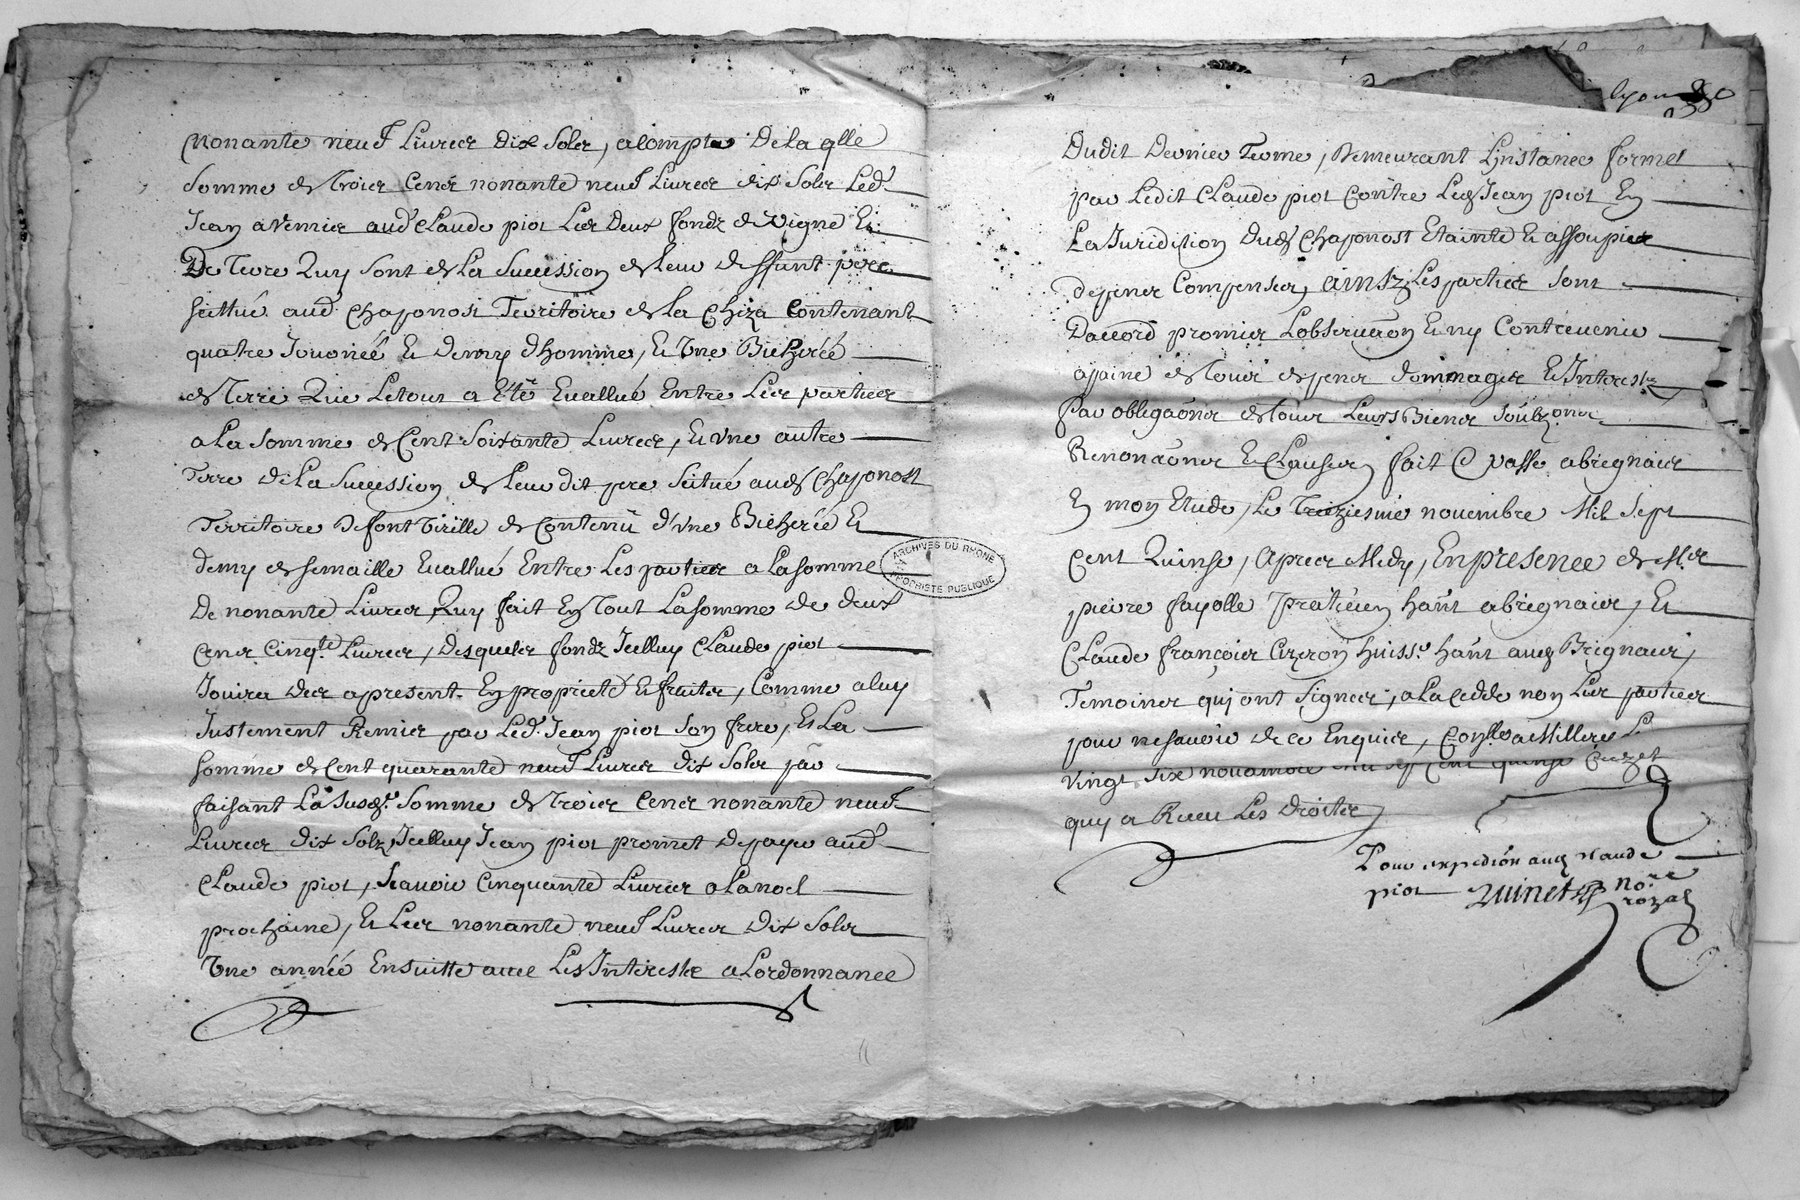 nonante neuf Livres dix Solz, acompte de laqlle
Somme de trois Cens nonante neuf Livres dix Solz Led.
Jean a remis aud Claude piot Les deux fondz de vigne Et
De Terre Quy sont de La Succession de leur deffunt pere
scittué aud. Chaponost Territoire de la Chiza Contenant
quatre Journéé Et demy dhomme, Et Une Bicheréé
de Terre Que Letout a été Evallué Entre Les parties
a La somme de Cent Soixante Livres, Et Vne autre
Terre de La Succession de leur dit pere scitué aud Chaponost
Territoire de font Virille de Contenü d'vne Bicheréé Et
demy de semaille Evallué Entre Les parties a La somme
De nonante Livres, Quy fait En Tout La somme de deux
Cens Cinqte Livres, desquels fondz Icelluy Claude piot
Jouira des apresent En proprieté Et fruites, Comme a luy
Justement Remis par Led. Jean piot Son frere, Et La
somme de Cent quarante neuf Livres dix Solz par
faisant La Susd. Somme de trois Cens nonante neuf
Livres dix Solz Icelluy Jean piot promet de payer aud
Claude piot, Scavoir Cinquante Livres a La noel
prochaine, Et Les nonante neuf Livres dix Solz
Une annéé Ensuitte avec Les Interestz a Lordonnance
lyon
Dudit Dernier Terme, Demeurant L'instance formeé
par Ledit Claude piot Contre Led Jean piot En
La Juridiction dud Chaponost Etainte Et assoupies
depens Compenses, ainsy Les parties sont
Daccord promis Lobservaon Et ny Contrevenir
a paine de Touts depens dommages Et Interestz
par obligaons de tous Leurs Biens Soubzons
Renonaons Et Clauses, fait & passé a brignais
En mon Etude, Le Treiziesme novembre Mil Sept
Cent Quinse, apres Midy, En presence de Mr
pierre fayolle praticien hañt a brignais, Et
Claude françois Cizeron huissr. hañt aud Brignais,
Temoins qui ont Signes, a La Cedde non Les parties
pour ne scavoir de ce Enquis, Conlle a Millery Le
vingt six novambre mil sept cent quinze Cuzet
quy a Receu Les droites
Pour expediõn aud claude
piot Quinet nore
royal
ARCHIVES DU RHONE
PROPRIETE PUBLIQUE